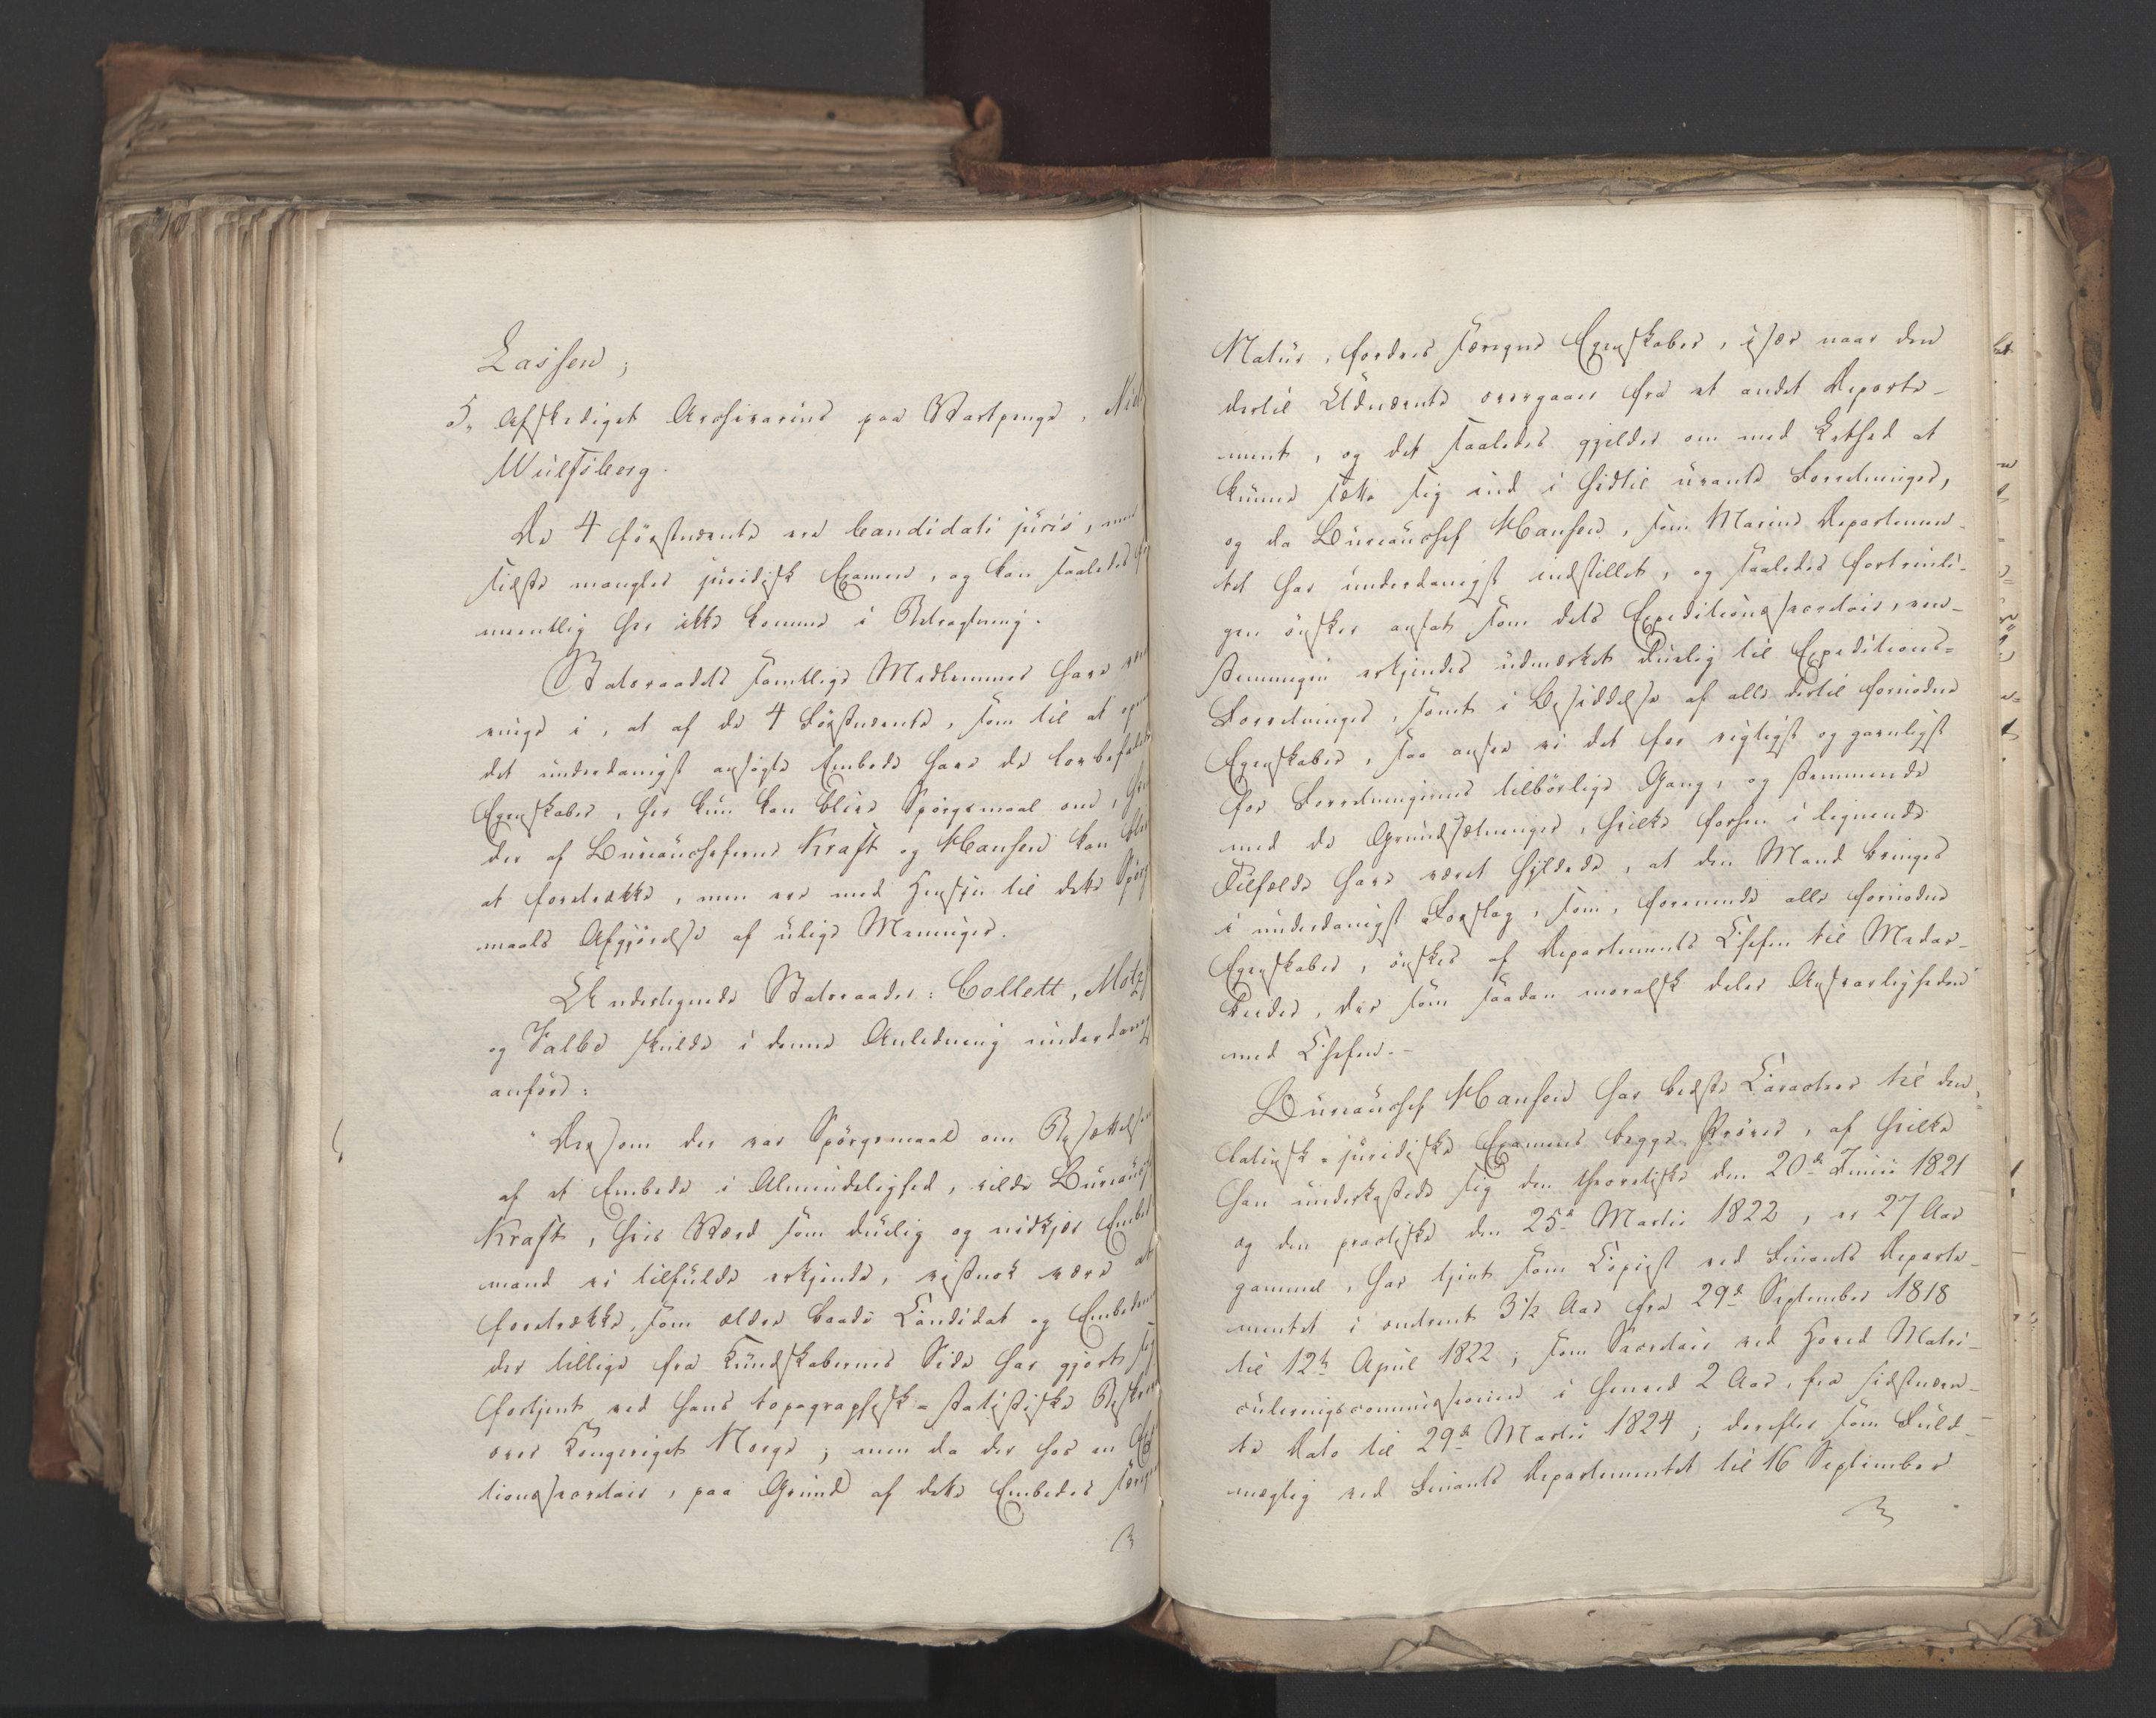 Lassen;
5, Afskediget Archivarius paa Vartpenge,
Wulfsberg.
De 4 förstnævnte ere Candidati juris, men
sidste mangler juridisk Examen, og kan saaledes
meentlig her ikke komme i Betragtning.
Statsraadets samtlige Medlemmer have
enige i, at af de 4 Förstnævnte, som til at
det underdanigst ansögte Embede have de lovbefalede
Egenskaber, her kun kan blive Spörgsmaal om,
der af Bureaucheferne Kraft og Hansen kan
at foretrække, men ere med Hensyn til dette Spörgs
maals Afgjörelse af ulige Meninger.
Undertegnede Statsraader: Collett, Motzf
og Falbe skulde i denne Anledning underdanigst
anföre:
"Dersom der var Spörgsmaal om Besættelsen
af et Embede i Almindelighed, vilde Bureauchef
Kraft, hvis Værd som duelig og nidkjær Embeds
mand vi tilfulde erkjende, vistnok være at
foretrække, som ældre baade Candidat og Embedsmand
der tillige fra Kundskabernes Side har gjort sig
fortjent ved hans topographisk-statistiske
over Kongeriget Norge; men da der hos en
tionssecretair, paa Grund af dette Embedes
Natur, fordres særegne Egenskaber, især naar den
dertil Udnævnte overgaaer fra et andet Departe-
ment, og det saaledes gjelder om med Lethed at
kunne sætte sig ind i hidtil uvante Forretninger,
og da Bureauchef Hansen, som Marine Departemen-
tet har underdanigst indstillet, og saaledes fortrinli-
gen önsker ansat som dets Expeditionssecretair, een-
stemmigen erkjendes udmærket duelig til Expeditions-
Forretninger, samt i Besiddelse af alle dertil fornödne
Egenskaber, saa ansee vi det for rigtigst og gavnligst
for Forretningernes tilbörlige Gang, og stemmende
med de Grundsætninger, hvilke forhen i lignende
Tilfælde have været hyldede, at den Mand bringes
i underdanigst Forslag, som, forenende alle fornödne
Egenskaber, önskes af Departements Chefen til Medar-
beider, der som saadan moralsk deler Ansvarligheden
med Chefen.-
Bureauchef Hansen har bedste Caracter til den
latinsk-juridiske Examens begge Pröver, af hvilke
han underkastede sig den theoretiske den 20de Junii 1821
og den practiske den 25de Martii 1822, er 27 Aar
gammel, har tjent som Copiist ved Finants Departe-
mentet i omtrent 3½ Aar fra 29de September 1818
til 12te April 1822; som Secretair ved Hoved Matri-
culeringscommissionen i henved 2 Aar, fra sidstnævn-
te Dato til 29de Martii 1824; derefter som Fuld-
mægtig ved Finants Departementet til 16 September